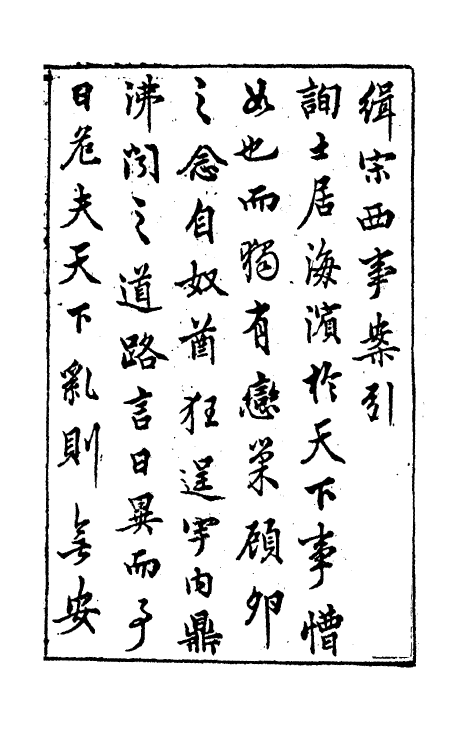 緝宋西事案引
詢士居海濱於天下事懵
如也而獨有戀巢顧卵
之念自奴酋狂逞宇內鼎
沸聞之道路言日異而事
日危夫天下亂則無安